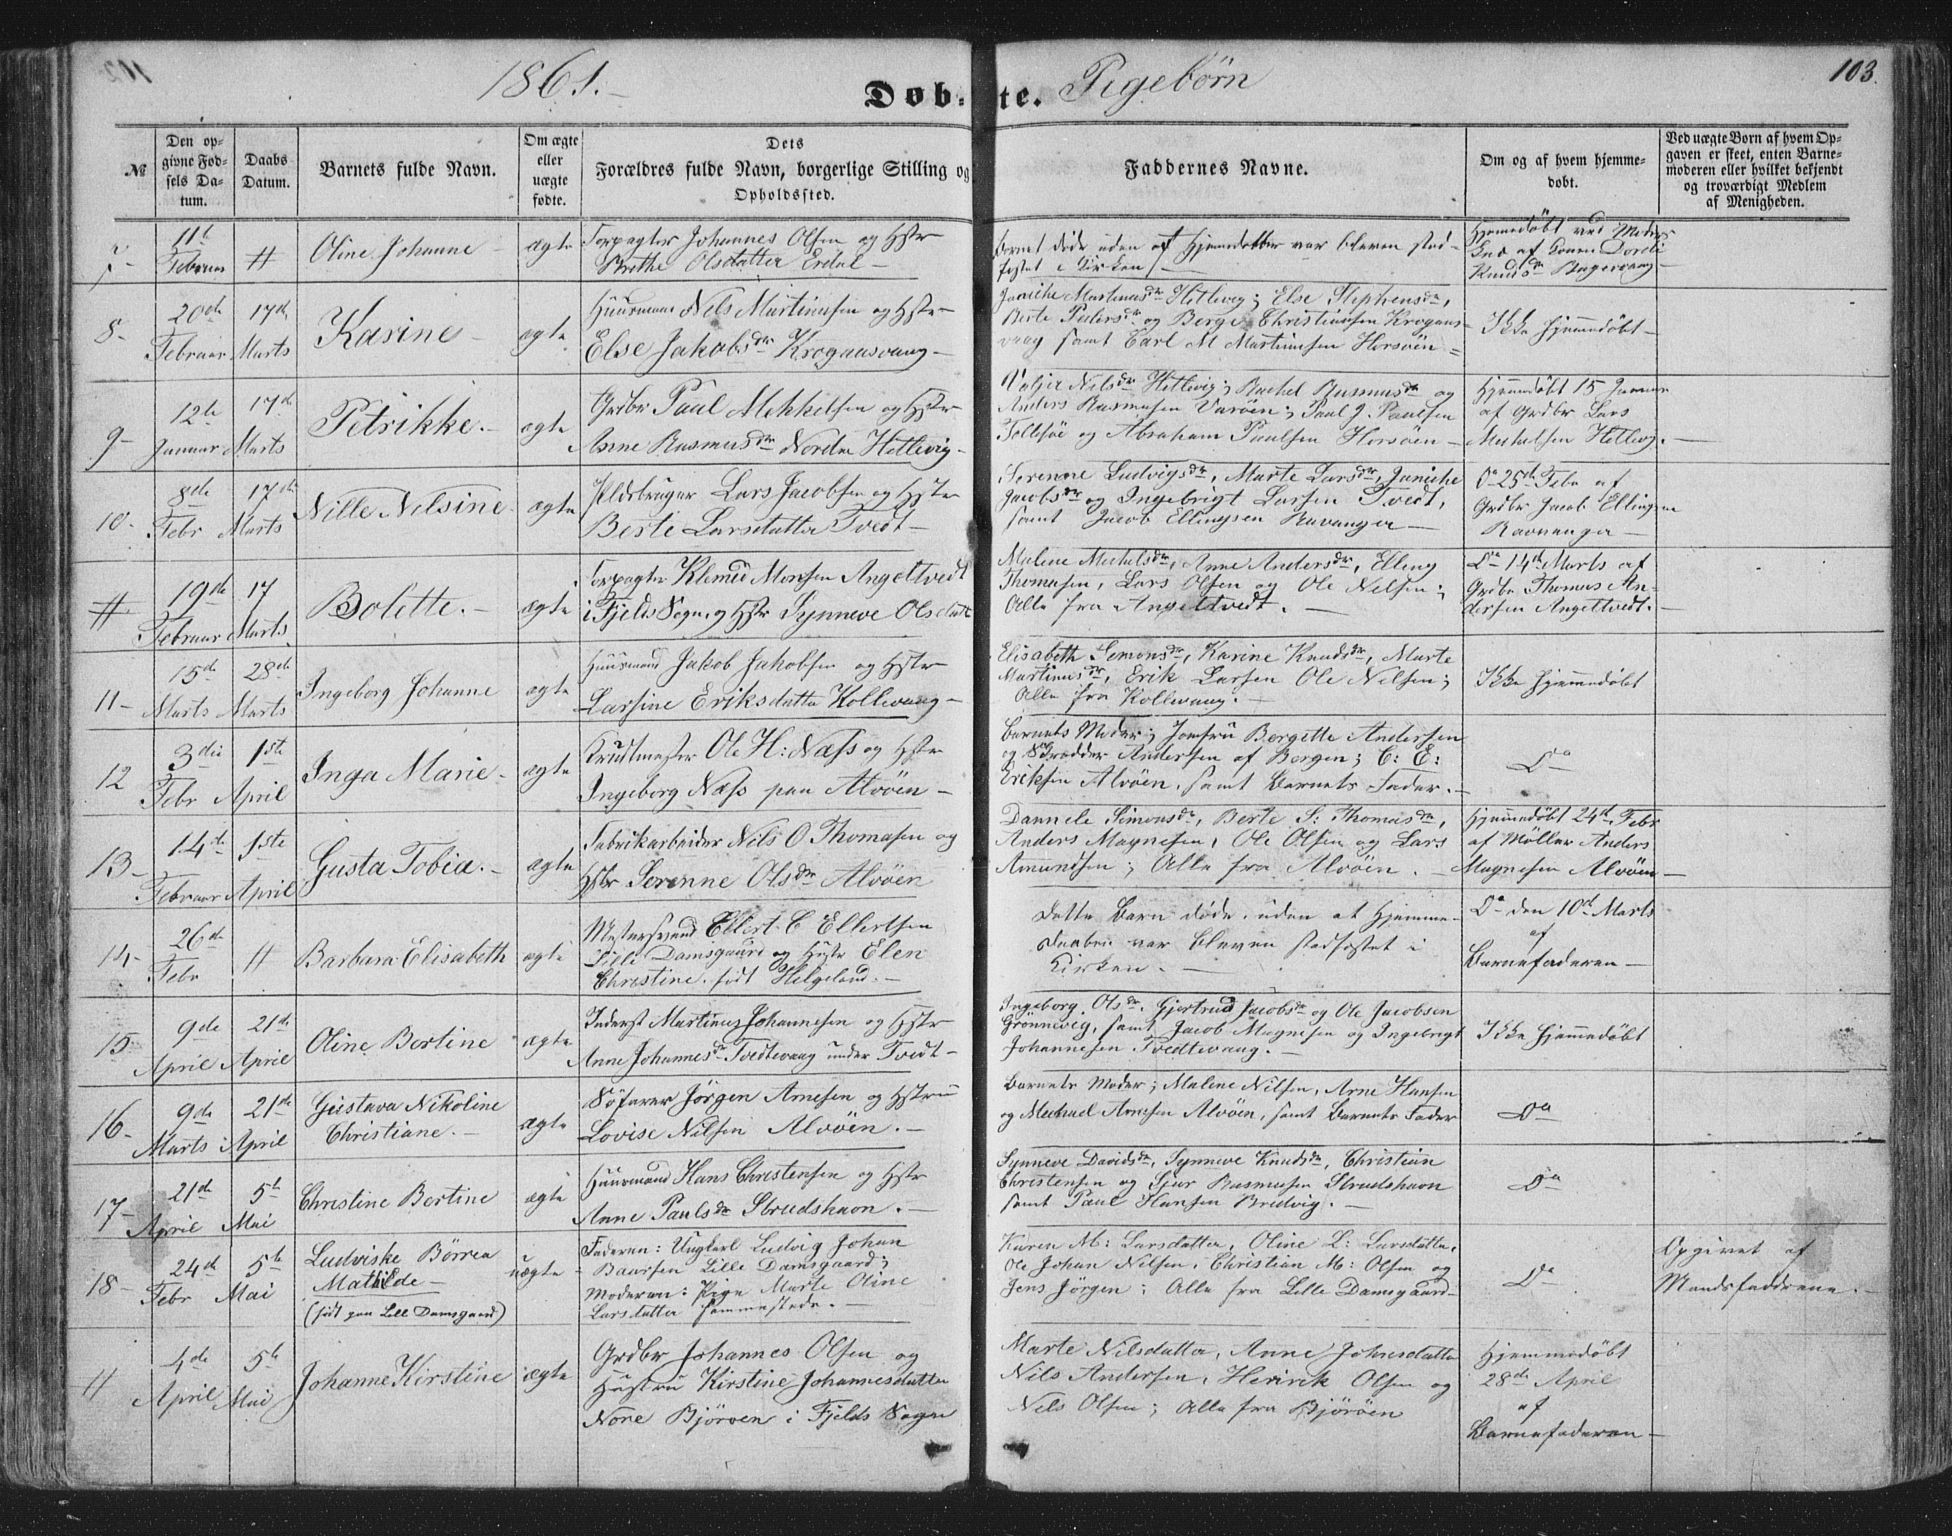 1861.
Døbte.
Pigebørn
103.
№
Den op-
givne Fød-
sels Da-
tum.
Daabs
Datum.
Barnets fulde Navn.
Om ægte
eller
uægte
fødte.
Dets
Forældres fulde Navn, borgerlige Stilling og
Opholdssted.
Faddernes Navne.
Om og af hvem hjemme-
døbt.
Ved uægte Børn af hvem Op-
gaven er skeet, enten Barne-
moderen eller hvilket bekjendt
og troværdigt Medlem
af Menigheden.
7-
11te
Februar
#
Oline Johanne
ægte
Forpagter Johannes Olsen og Hstr
Brithe Olsdatter
Barnet døde uden at Hjemmedøbte var bleven stad-
fæstet i Kirken
Hjemmedøbt ved
af Konen Dorthe
Knudsdr
8-
20de
Februar
17de
Marts
Karine
ægte
Huusmand Nils Martinusen og Hstr
Else Jakobsdr Krogaasvaag
Janiche Martinusdr Hetlevig; Else Stephensdr,
Berte Pedersdr og Berge Christiansen Krogaas-
vaag samt Carl M Martinusen Horsøen
Ikke hjemmedøbt
9-
12te
Januar
17de
Marts
Petrikke.
ægte
Grdbr Paul Mikkelsen og Hstr
Anne Rasmusdr Nordre Hetlevig
Nilsdr Hetlevig; Rachel Rasmusdr og
Anders Rasmusen Varøen; Paul J. Paulsen
Tollesøe og Abraham Paulsen Horsøen
Hjemmedøbt 15 Januar
af Grdbr Lars
Michelsen Hetlevig.
10-
8de
Febr
17de
Marts
Nille Nilsine
ægte
Pladsbruger Lars Jacobsen og Hstr
Berte Larsdatter Tvedt
Serenne Ludvigsdr, Marte Larsdr, Janiche
Jacobsdr og Ingebrigt Larsen Tvedt,
samt Jacob Ellingsen Ravanger
Do 25de Febr af
Grdbr Jacob Ellingsen
Ravnanger
#
19de
Februar
17
Marts
Bolette.
ægte
Forpagter Klemed Monsen Angeltvedt
i Fjelds Sogn, og Hstr Synneve Olsdatt
Malene Michelsdr, Anne Andersdr, Elling
Thomasen, Lars Olsen og Ole Nilsen;
Alle fra Angeltvedt.
Do 14de Marts af
Grdbr Thomas An-
dersen Angeltvedt.
11-
15de
Marts
28de
Marts
Ingeborg Johanne
ægte
Huusmand Jakob Jakobsen og Hstr
Larsine Eriksdatter Kollevaag
Elisabeth Simonsdr, Karine Knudsdr, Marte
Martinusdr, Erik Larsen Ole Nilsen;
Alle fra Kollevaag.
Ikke hjemmedøbt
12
3die
Febr
1ste
April
Inga Marie
ægte
Krudtmester Ole H: Næss og Hstr
Ingeborg Næss paa Alvøen
Barnets Moder; Jomfru Bergitte Andersen
og Skrædder Andersen af Bergen; C: E:
Eriksen Alvøen, samt Barnets Fader.
Do
13-
14de
Februar
1ste
April
Gusta Tobia.
ægte
Fabrikarbeider Nils O Thomasen og
Hstr Serenne Olsdr Alvøen
Dannele Simonsdr, Berte S: Thomasdr,
Anders Magnesen, Ole Olsen og Lars
Amundsen; Alle fra Alvøen.
Hjemmedøbt 24de Febr
af Møller Anders
Magnesen Alvøen
14-
26de
Febr
#
Barbara Elisabeth
ægte
Mestersvend Ellert C Ellertsen
Lille Damsgaard og Hstr Elen
Christine født Helgeland.
Dette Barn døde uden at Hjemme-
daaben var bleven stadfæstet i
Kirken.
Do den 10de Marts
af
Barnefaderen
15-
9de
April
21de
April
Oline Bertine
ægte
Inderst Martinus Johannesen og Hstr
Anne Johannesdr Tvedtevaag under Tvedt
Ingeborg Olsdr, Gjertrud Jacobsdr og Ole Jacobsen
Grønnevig, samt Jacob Magnesen og Ingebrigt
Johannesen Tvedtevaag.
Ikke hjemmedøbt
16-
9de
Marts
21de
April
Gustava Nikoline
Christiane.
ægte
Søfarer Jörgen Arnesen og Hstru
Lovise Nilsen Alvöen.
Barnets Moder; Malene Nilsen, Arne Hansen
og Michael Arnesen Alvöen, samt Barnets Fader
Do
17-
21de
April
5te
Mai
Christine Bertine
ægte
Huusmand Hans Christensen og Hstr
Anne Paulsdr Strudshavn.
Synneve Davidsdr, Synneve Knudsdr, Christian
Christensen og Sjur Rasmusen Strudshavn
samt Paul Hansen Bredvig.
Do
18-
24de
Febr
5te
Mai
Ludviske Börrea
Mathilde
(født paa Lille Damsgaard)
uægte
Faderen: Ungkarl Ludvig Johan
Baarsen Lille Damsgaard;
Moderen: Pige Marte Oline
Larsdatter sammesteds.
Karen M: Larsdatter, Oline L: Larsdatter,
Ole Johan Nilsen, Christian M: Olsen og
Jens Jörgen; Alle fra Lille Damsgaard
Do
Opgivet af
Mandsfadderne.
#
4de
April
5te
Mai
Johanne Kirstine
ægte
Grdbr Johannes Olsen og
Hustru Kirstine Johannesdatter
Björöen i Fjelds Sogn
Marte Nilsdatter, Anne Johnesdatter
Nils Andersen, Henrik Olsen og
Nels Olsen; Alle fra Björöen
Hjemmedøbt
28de April
af
Barnefaderen